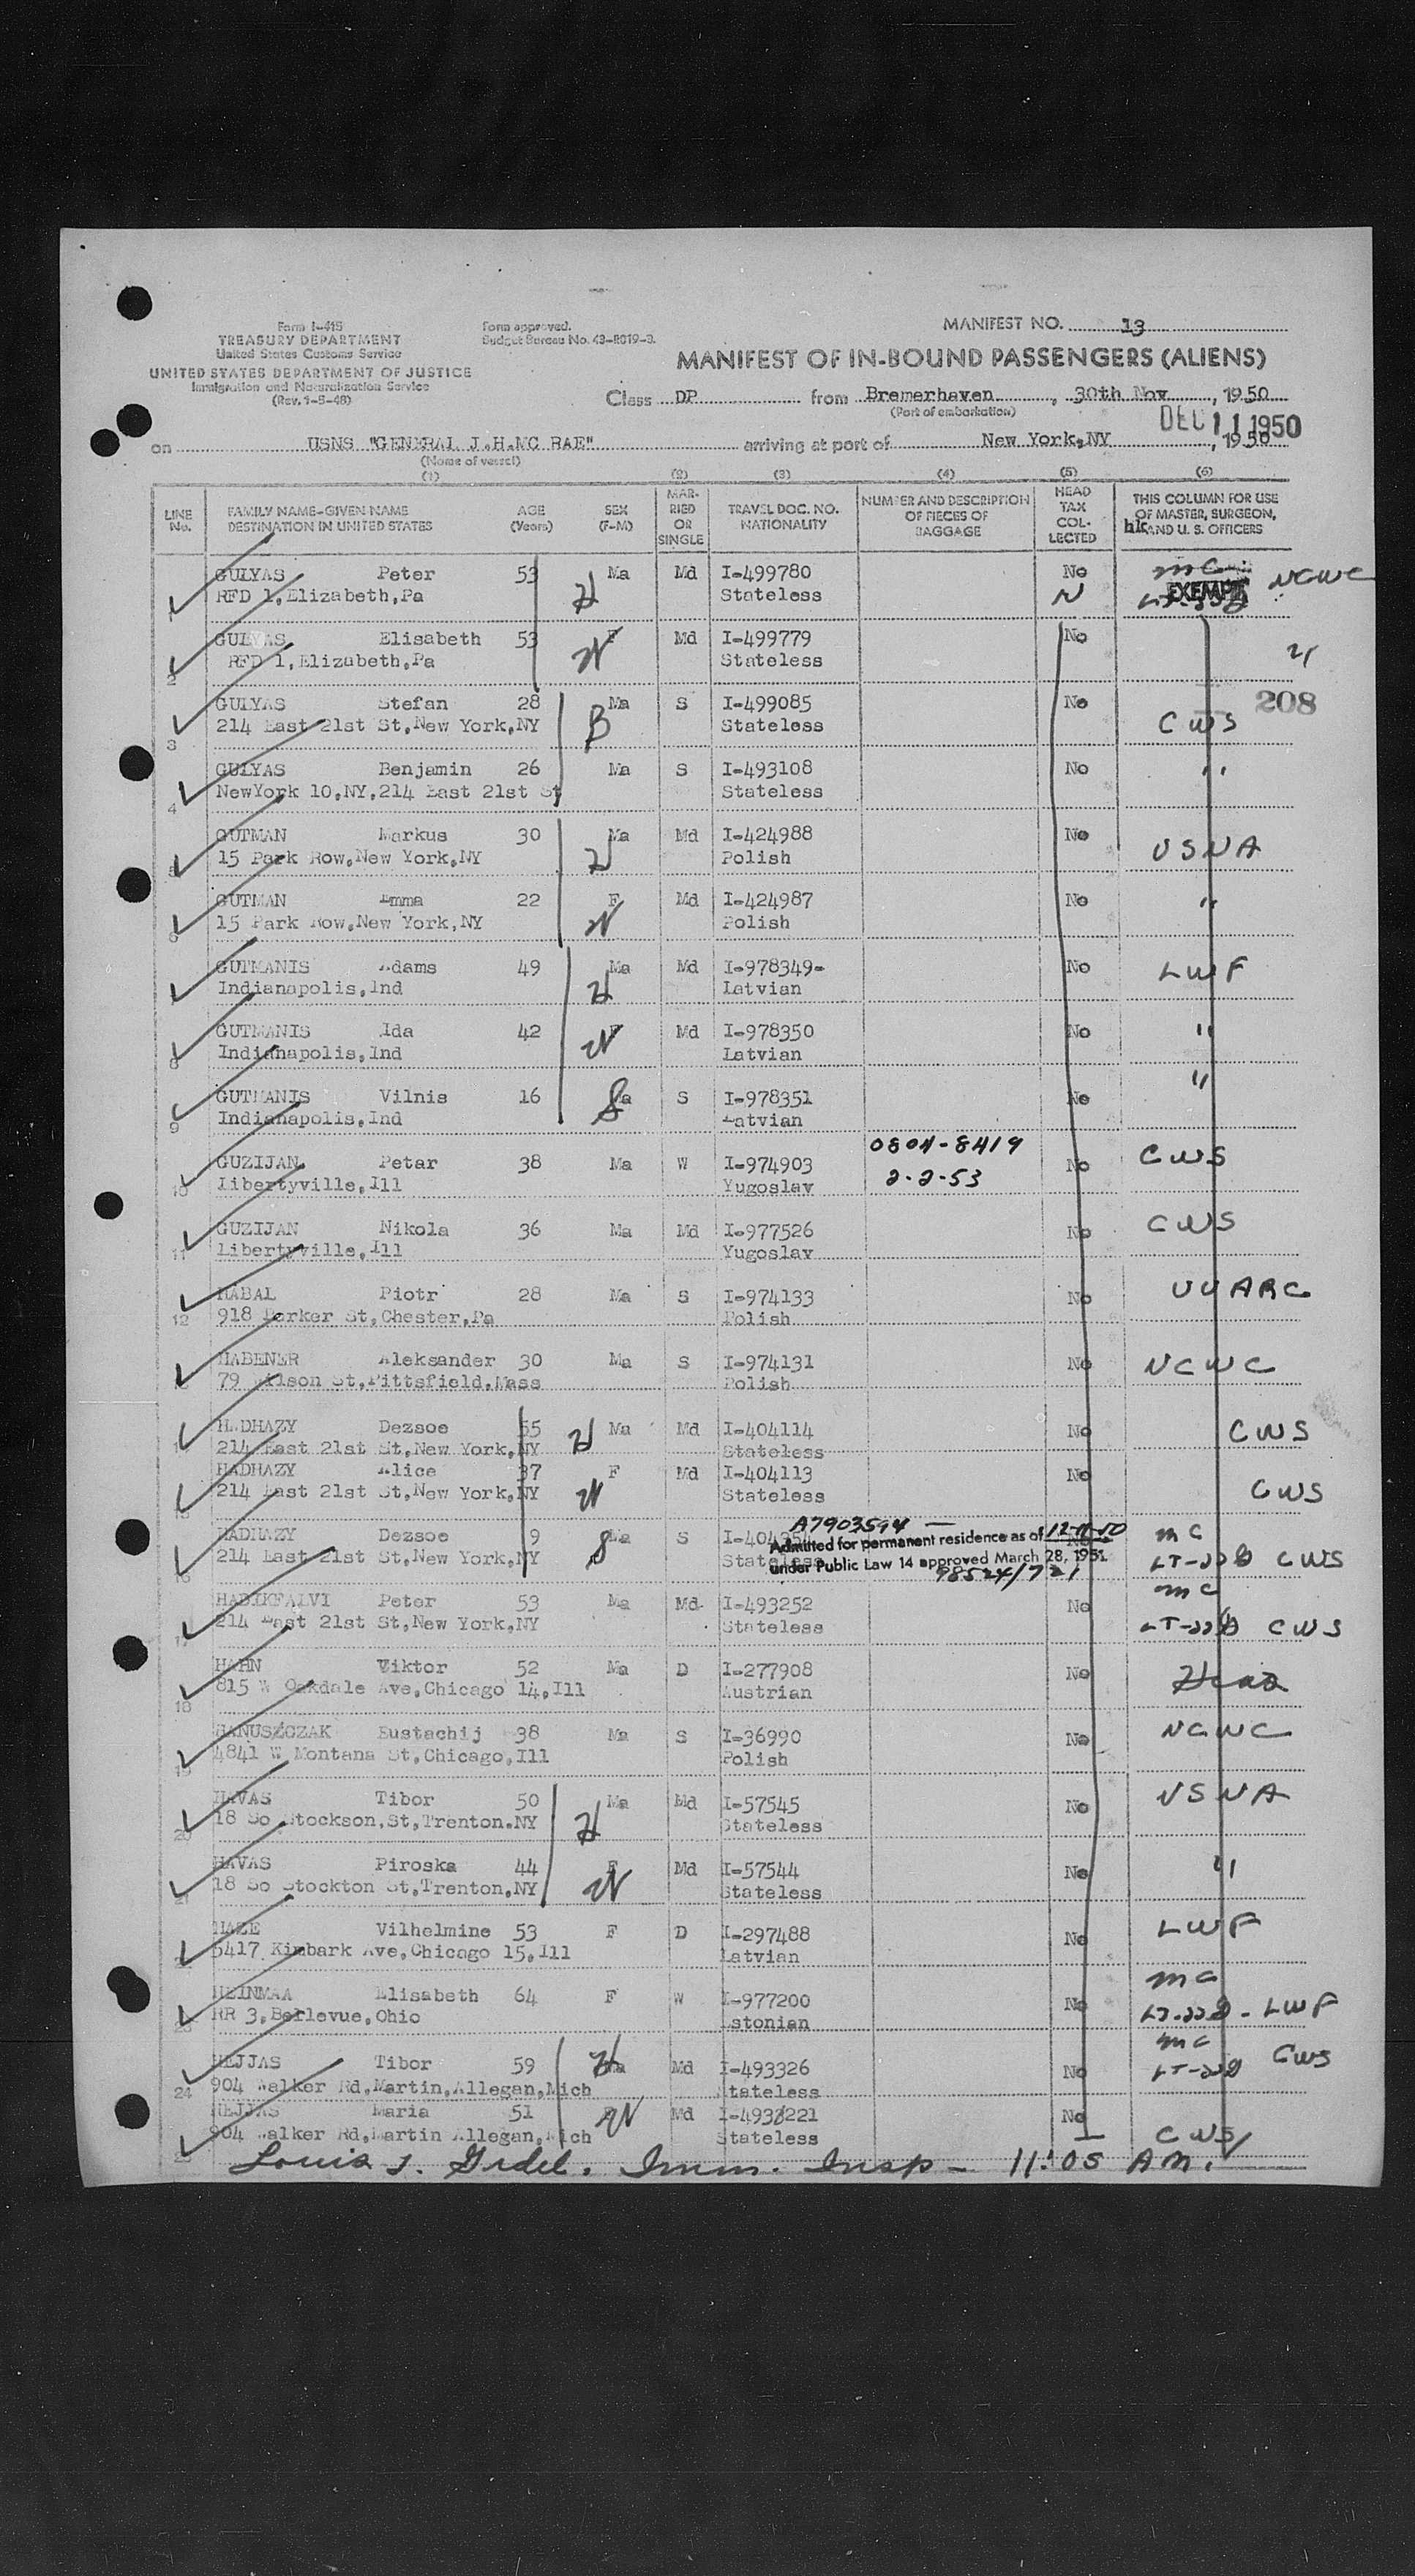 Form I-415
TREASURY DEPARTMENT
United States Customs Service
UNITED STATES DEPARTMENT OF JUSTICE
Immigration and Naturalization Service
(Rev. 1-5-48)
Form approved.
Budget Bureau No. 43-R019-3.
MANIFEST NO. 13
MANIFEST OF IN-BOUND PASSENGERS (ALIENS)
Class DP from Bremerhaven, 30th Nov, 1950
(Port of embarkation)
DEC 11 1950
on USNS "GENERAL J.H.MC RAE" arriving at port of New York,NY, 1950
(Name of vessel)
(1) (2) (3) (4) (5) (6)
LINE No. FAMILY NAME-GIVEN NAME DESTINATION IN UNITED STATES AGE (Years) SEX (F-M) MAR-RIED OR SINGLE TRAVEL DOC. NO. NATIONALITY NUMBER AND DESCRIPTION OF PIECES OF BAGGAGE HEAD TAX COL-LECTED THIS COLUMN FOR USE OF MASTER, SURGEON, AND U. S. OFFICERS
hk
GULYAS Peter 53 Ma Md I-499780 No MC EXEMPT NCWC
1 RFD 1,Elizabeth,Pa H Stateless N
GULYAS Elisabeth 53 F Md I-499779 No "
2 RFD 1,Elizabeth,Pa W Stateless
GULYAS Stefan 28 Ma S I-499085 No 208
3 214 East 21st St,New York,NY B Stateless CWS
GULYAS Benjamin 26 Ma S I-493108 No "
4 NewYork 10,NY,214 East 21st St Stateless
GUTMAN Markus 30 Ma Md I-424988 No USNA
5 15 Park Row,New York,NY H Polish
GUTMAN Emma 22 F Md I-424987 No "
6 15 Park Row,New York,NY W Polish
GUTMANIS Adams 49 Ma Md I-978349- No LWF
Indianapolis,Ind H Latvian
GUTMANIS Ida 42 F Md I-978350 No "
8 Indianapolis,Ind W Latvian
GUTMANIS Vilnis 16 Ma S I-978351 No "
9 Indianapolis,Ind S Latvian
GUZIJAN Petar 38 Ma W I-974903 0804-8419 No CWS
10 Libertyville,Ill Yugoslav 2-2-53
GUZIJAN Nikola 36 Ma Md I-977526 No CWS
11 Libertyville,Ill Yugoslav
HABAL Piotr 28 Ma S I-974133 No UUARC
12 918 Parker St,Chester,Pa Polish
HABENER Aleksander 30 Ma S I-974131 No NCWC
79 Wilson St,Pittsfield,Mass Polish
HADHAZY Dezsoe 55 Ma Md I-404114 No CWS
214 East 21st St,New York,NY H Stateless
HADHAZY Alice 37 F Md I-404113 No
214 East 21st St,New York,NY W Stateless CWS
A7903594 —
HADHAZY Dezsoe 9 Ma S I-404354 Admitted for permanent residence as of 12-11-50 MC
16 214 East 21st St,New York,NY S Stateless under Public Law 14 approved March 28, 1951. LT-22B CWS
98524/721
HADIKFALVI Peter 53 Ma Md I-493252 No MC
214 East 21st St,New York,NY Stateless LT-22B CWS
HAHN Viktor 52 Ma D I-277908 No Hias
18 815 W Oakdale Ave,Chicago 14,Ill Austrian
HANUSZCZAK Eustachij 38 Ma S I-36990 No NCWC
19 4841 W Montana St,Chicago,Ill Polish
HAVAS Tibor 50 Ma Md I-57545 No USNA
20 18 So Stockson,St,Trenton.NY H Stateless
HAVAS Piroska 44 F Md I-57544 No "
21 18 So Stockton St,Trenton,NY W Stateless
HAZE Vilhelmine 53 F D I-297488 No LWF
5417 Kimbark Ave,Chicago 15,Ill Latvian
HEINMAA Elisabeth 64 F W I-977200 No MC
RR 3,Bellevue,Ohio Estonian LT-22B - LWF
HEJJAS Tibor 59 H Ma Md I-493326 No MC CWS
24 904 Walker Rd,Martin,Allegan,Mich Stateless LT-22B
HEJJAS Maria 51 W Md No
904 Walker Rd,Martin Allegan,Mich Stateless CWS
Louis J. Imm. Insp - 11:05 AM.